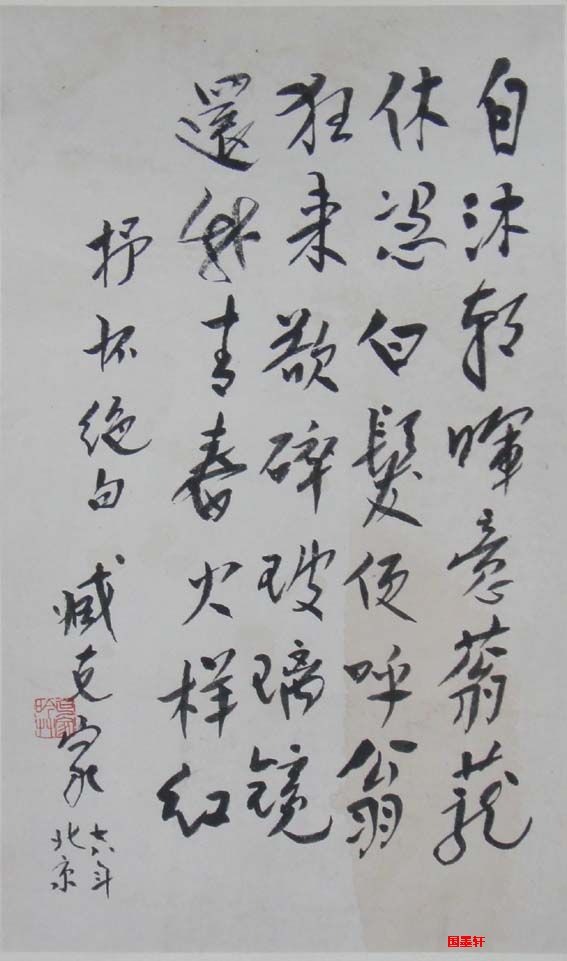 自沐朝暉意蓊蘢
休恐白髮便呼翁
狂来欲碎玻璃镜
還我青春火样红
抒怀绝句
臧克家
北京
国墨轩